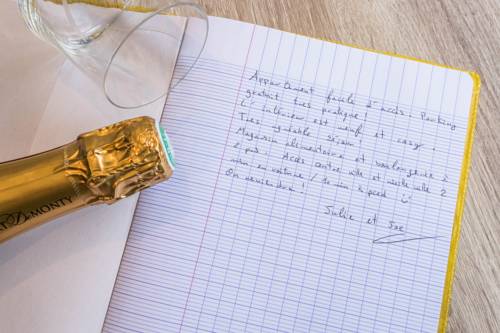 Appartement facile d'accès. Parking
gratuit très pratique !
L'intérieur est neuf et cosy.
Très agréable séjour !
Magasin alimentaire et boulangerie à
2 pas. Accès centre ville et vieille ville 2
min en voiture / 10 min à pied
On reviendra !
Julie et Joe
DEMONTY